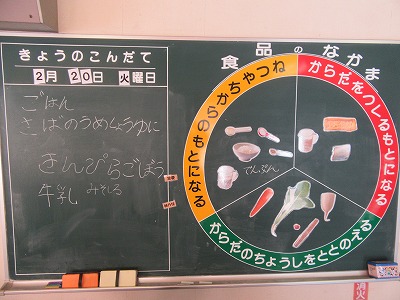 きょうのこんだて
2月 20日 火曜日
ごはん
さばのうめしょうゆに
きんぴらごぼう
牛乳 みそしる
食品のなかま
ちからやねつのもとになる
からだをつくるもとになる
からだのちょうしをととのえる
でんぷん